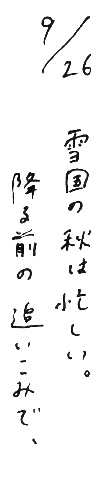 9/26
雪国の秋は忙しい。
降る前の追いこみで、